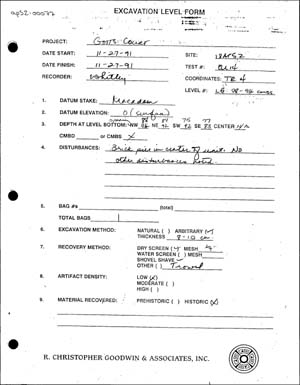 ap52-00077
EXCAVATION LEVEL FORM
PROJECT: Gott's Court
DATE START: 11-27-91 SITE:
DATE FINISH: 11-27-91 TEST #:
RECORDER: Whitley COORDINATES: TR 4
LEVEL #:
1. DATUM STAKE: Macadam
2. DATUM ELEVATION: 0 (surface)
3. DEPTH AT LEVEL BOTTOM: NW NE SW SE CENTER N/A
CMBD or CMBS X
4. DISTURBANCES: Brick pier in center of unit. No
other disturbances noted.
5. BAG #s (total)
TOTAL BAGS
6. EXCAVATION METHOD: NATURAL ( ) ARBITRARY (✓)
THICKNESS 8-10 cm
7. RECOVERY METHOD: DRY SCREEN (✓) MESH
WATER SCREEN ( ) MESH
SHOVEL SHAVE
OTHER ( ) Trowel
8. ARTIFACT DENSITY: LOW (X)
MODERATE ( )
HIGH ( )
9. MATERIAL RECOVERED: PREHISTORIC ( ) HISTORIC (X)
R. CHRISTOPHER GOODWIN & ASSOCIATES, INC.